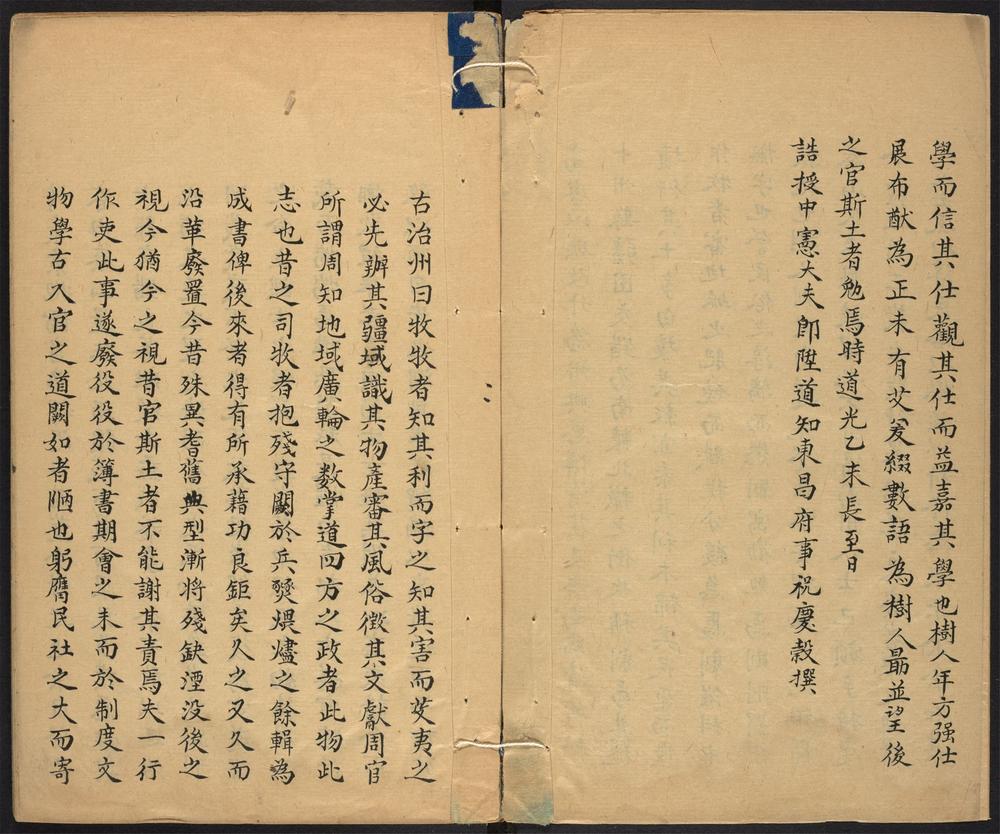 學而信其仕觀其仕而益嘉其學也樹人年方强仕
展布猷為正未有艾爰綴數語為樹人勗並望後
之官斯土者勉焉時道光乙未長至日
誥授中憲大夫卽陞道知東昌府事祝慶穀撰
古治州曰牧牧者知其利而字之知其害而芟夷之
必先辦其疆域識其物產審其風俗徵其文獻周官
所謂周知地域廣輪之数掌道四方之政者此物此
志也昔之司牧者抱殘守闕於兵燹煨燼之餘輯為
成書俾後來者得有所承藉功良鉅矣久之又久而
沿革廢置今昔殊異耆舊典型漸将殘缺湮没後之
視今猶今之視昔官斯土者不能謝其責焉夫一行
作吏此事遂廢役役於簿書期會之末而於制度文
物學古入官之道闕如者陋也躬膺民社之大而寄